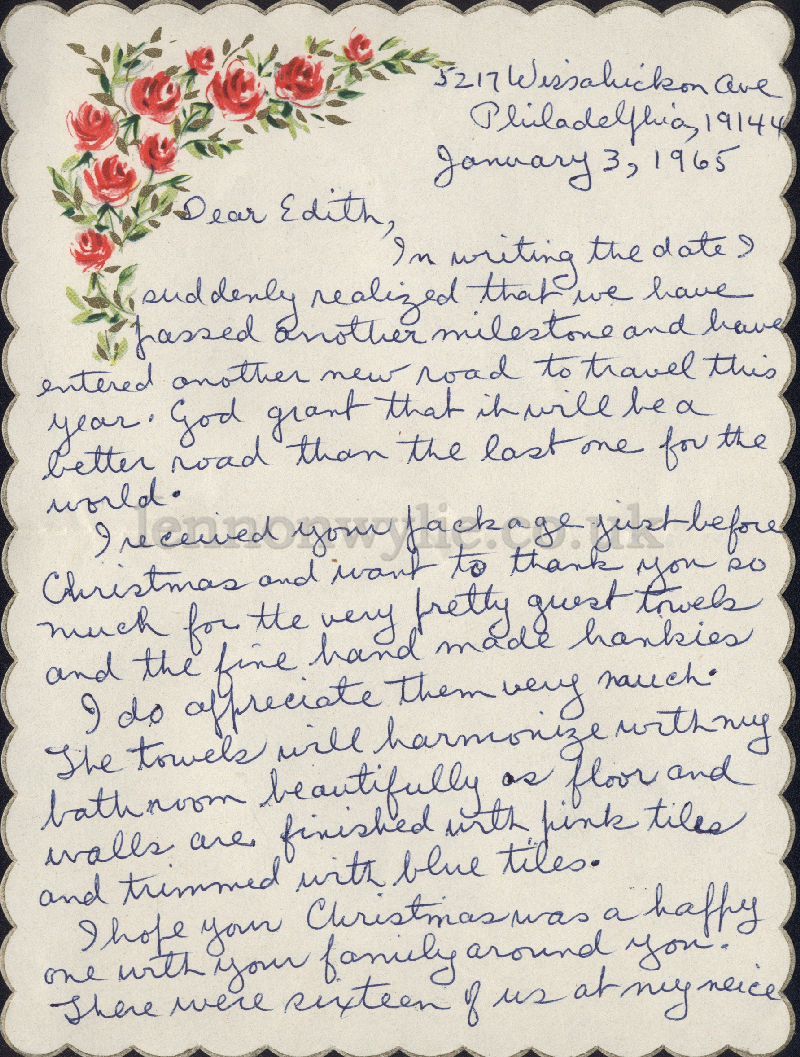 5217 Wissahickon Ave
Philadelphia, 19144
January 3, 1965
Dear Edith,
In writing the date I
suddenly realized that we have
passed another milestone and have
entered another new road to travel this
year. God grant that it will be a
better road than the last one for the
world.
lennonwylie.co.uk
I received your package just before
Christmas and want to thank you so
much for the very pretty guest towels
and the fine hand made hankies
I do appreciate them very much.
The towels will harmonize with my
bathroom beautifully as floor and
walls are finished with pink tiles
and trimmed with blue tiles.
I hope your Christmas was a happy
one with your family around you.
There were sixteen of us at my neice